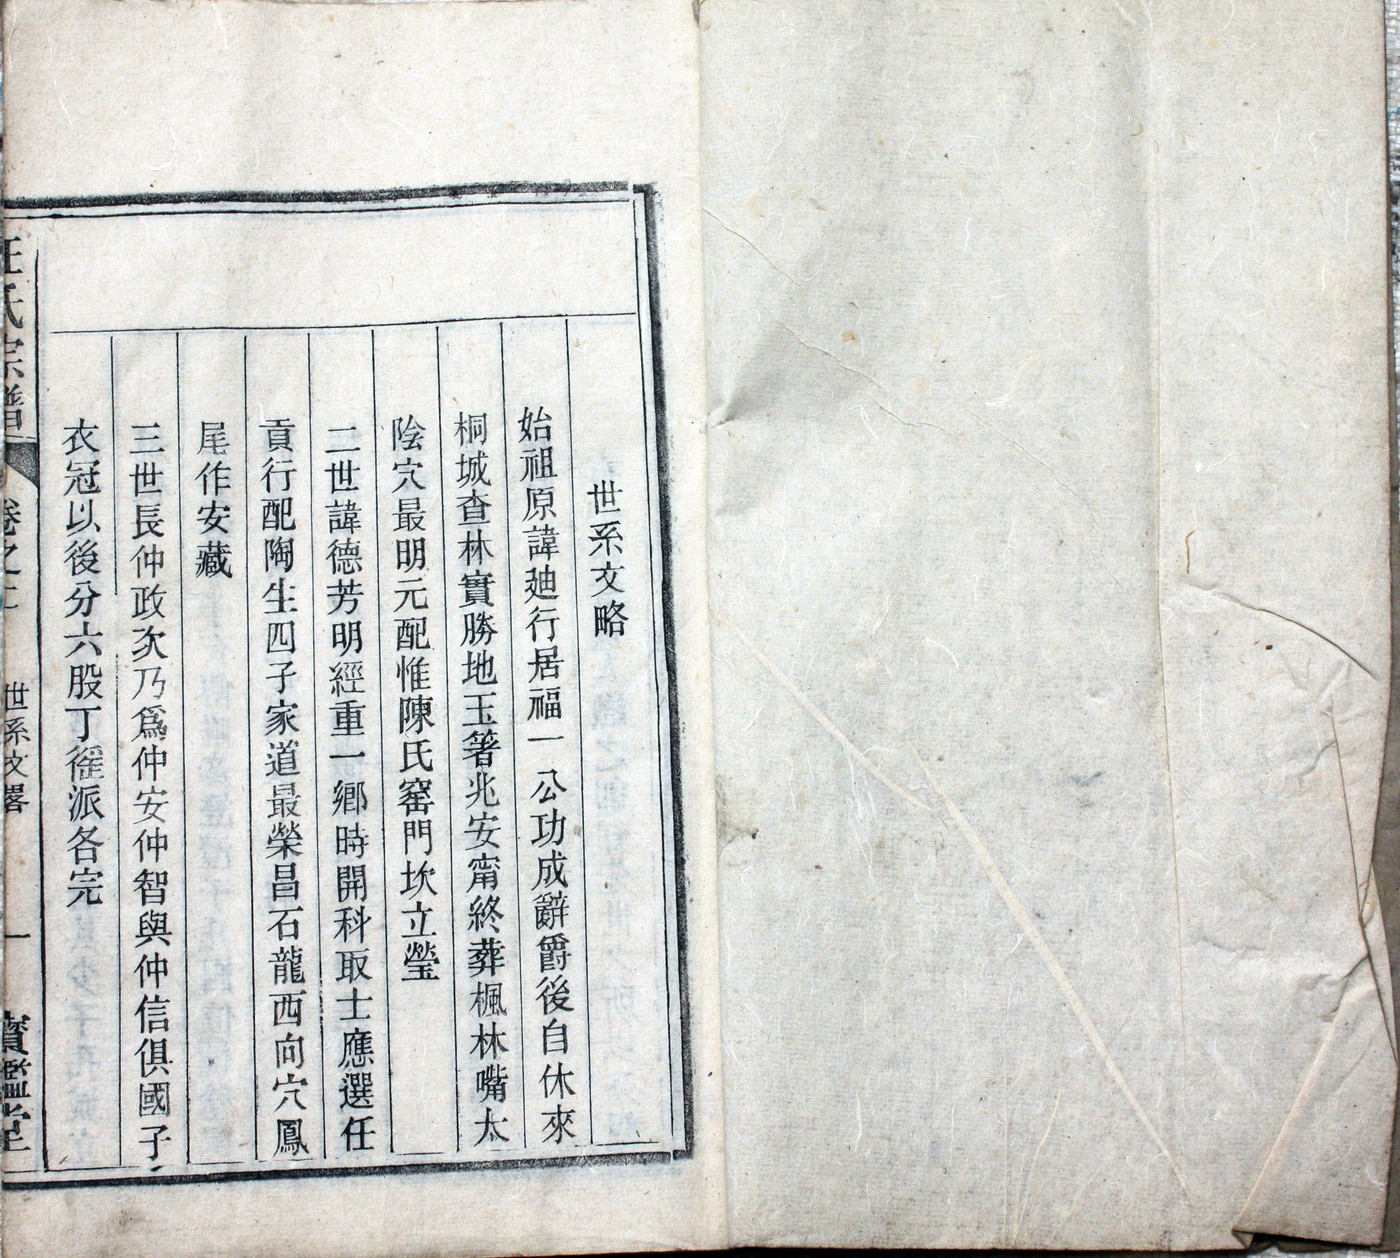 世系文略
始祖原諱廸行居福一公功成辭爵後自休來
桐城查林實勝地玉箸兆安甯終葬楓林嘴太
陰穴最明元配惟陳氏窰門坎立瑩
二世諱德芳明經重一鄉時開科取士應選任
貢行配陶生四子家道最榮昌石龍西向穴鳳
尾作安藏
三世長仲政次乃爲仲安仲智與仲信俱國子
衣冠以後分六股丁徭派各完
汪氏宗譜 卷之二 世系文畧 一 寶鑑堂